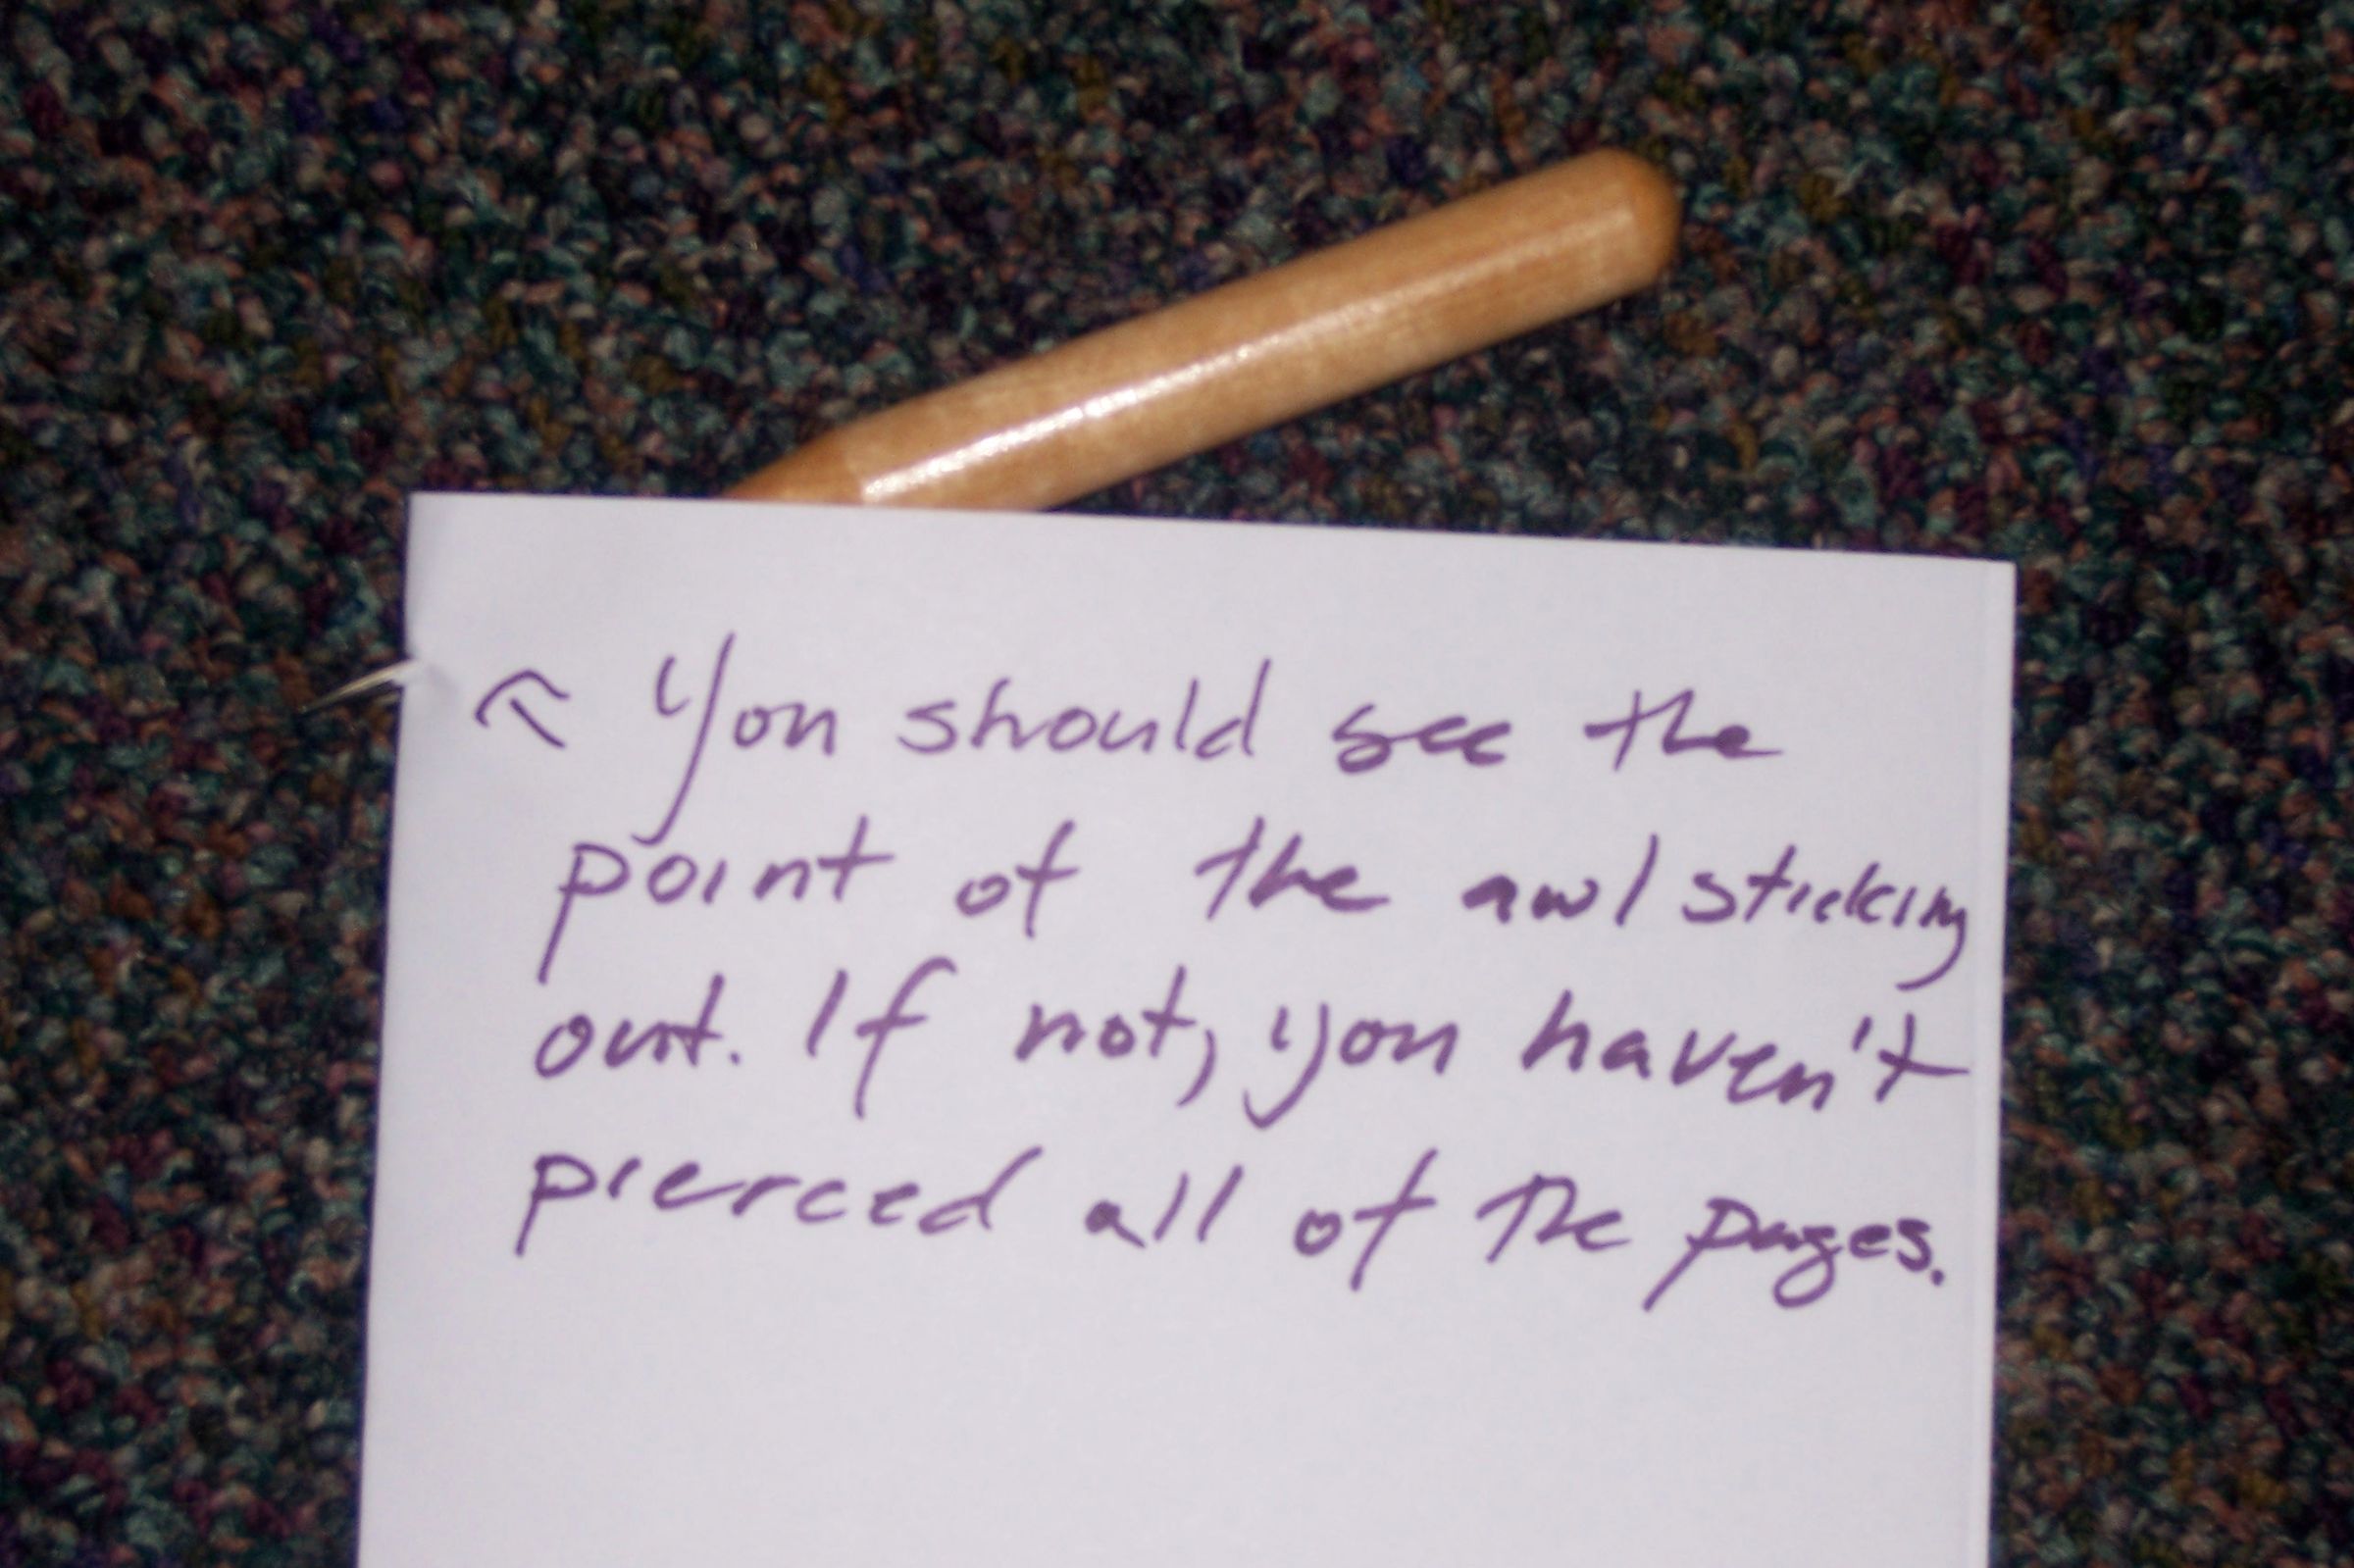 ← You should see the
point of the awl sticking
out. If not, you haven't
pierced all of the pages.